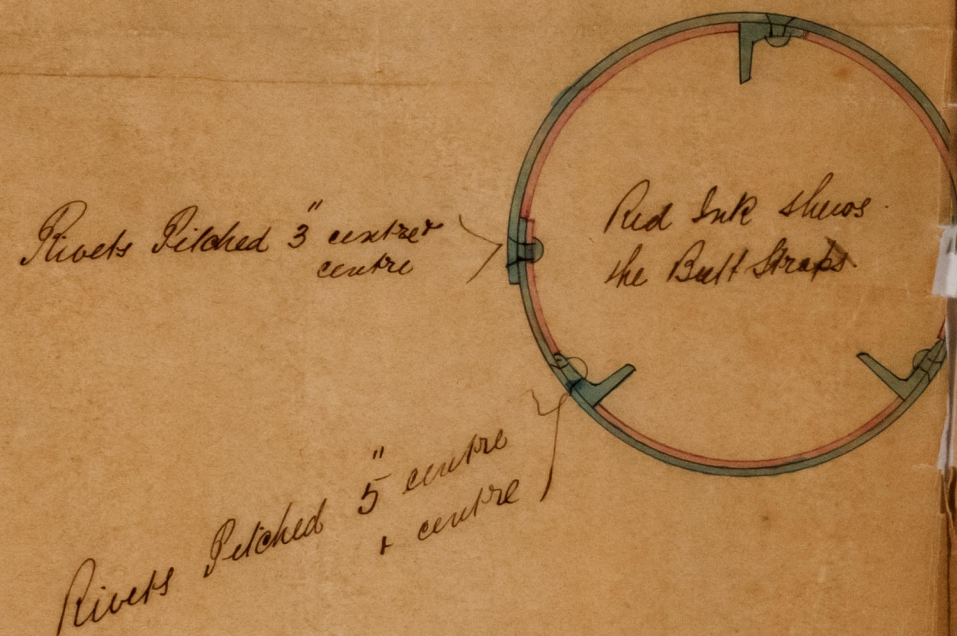 Rivets Pitched 3" centre &
centre
Red Ink shews
the Butt Straps.
Rivets Pitched 5" centre
& centre